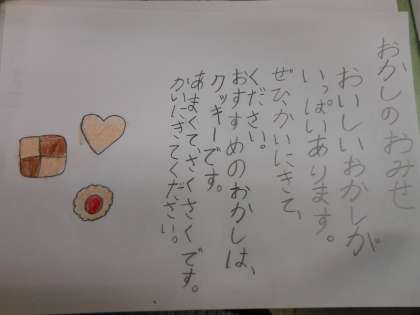 おかしのおみせ
おいしいおかしが
いっぱいあります。
ぜひかいにきて、
ください。
おすすめのおかしは、
クッキーです。
あまくて、さくさくです。
かいにきてください。